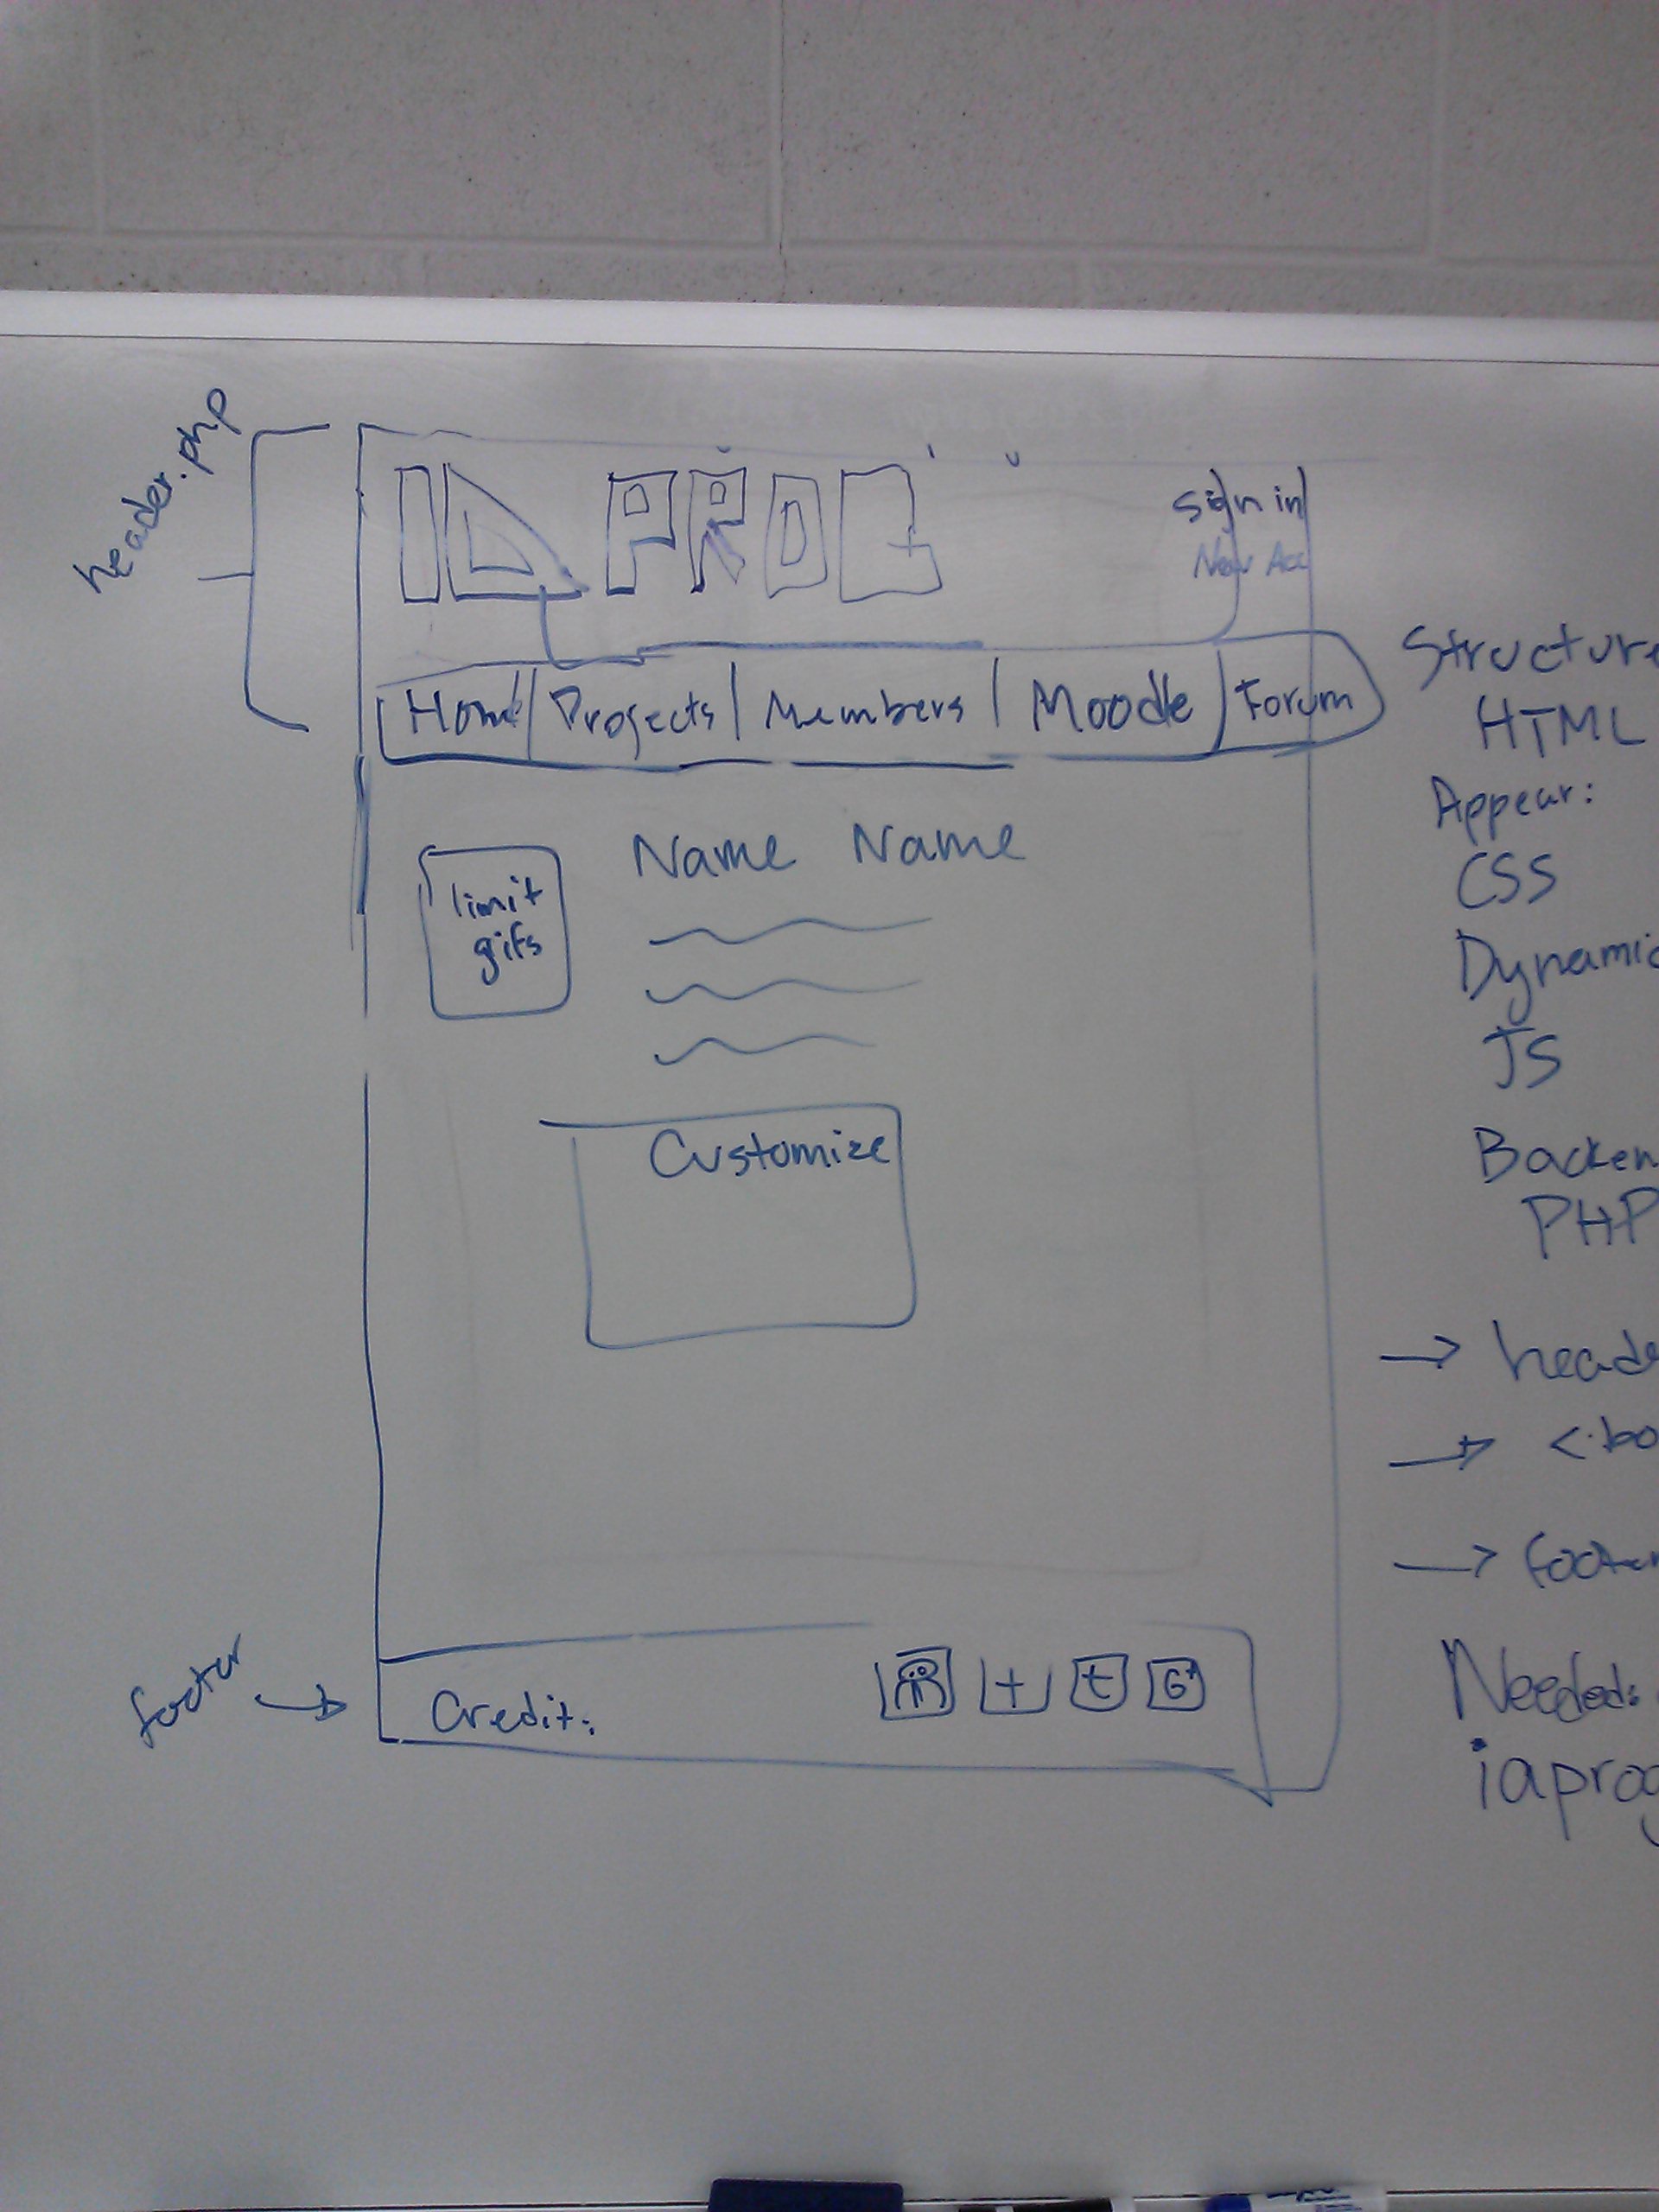 header.php
IA PROG
sign in
New Acc
Home Projects Members Moodle Forum
limit
gifs
Name Name
Customize
footer
Credit:
t G+
Structure
HTML
Appear:
CSS
Dynamic
JS
Backen
PHP
→ heade
→ <bo
→ footer
Needed:
iaprog